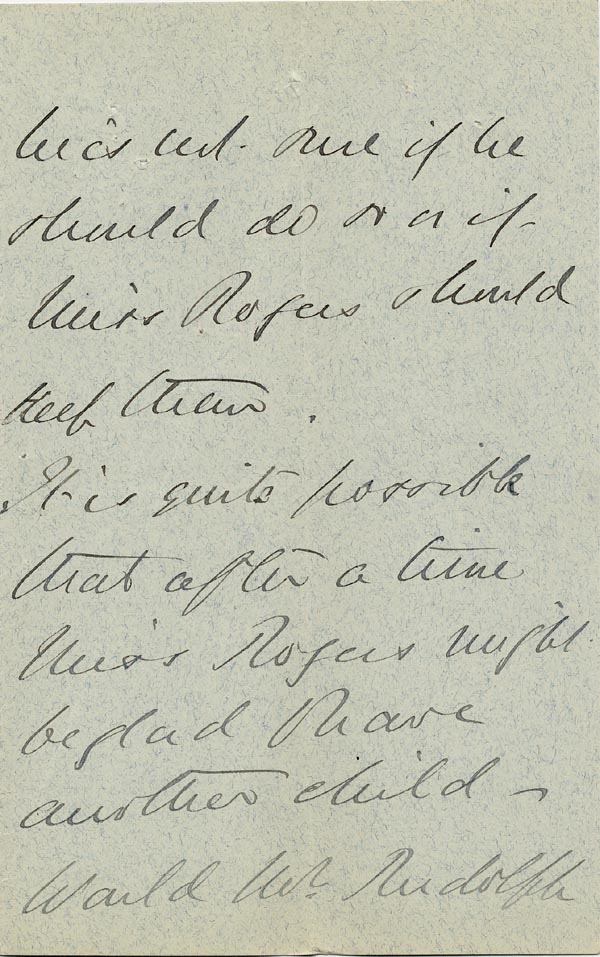 he is not sure if he
should do so or if
Miss Rogers should
keep them.
It is quite possible
that after a time
Miss Rogers might
be glad to have
another child –
Would Mr. Rudolph